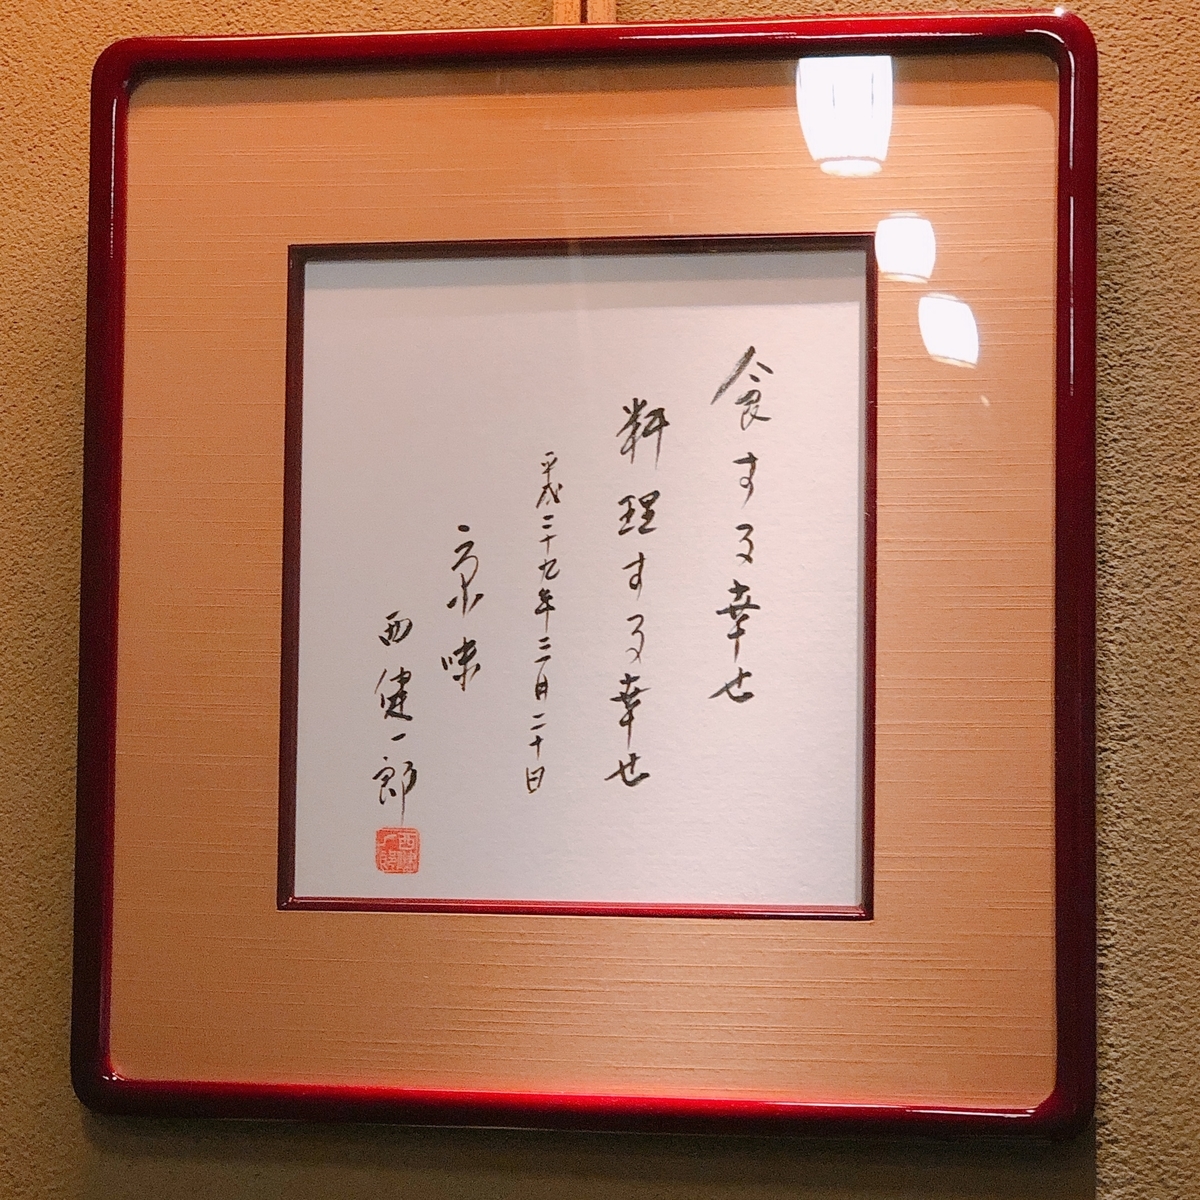 食する幸せ
料理する幸せ
平成二十九年三月二十日
京味
西健一郎